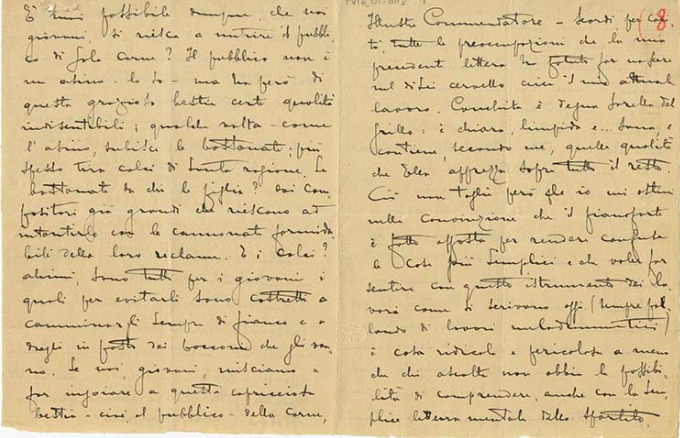 È mai possibile dunque, che noi
giovani, si riesca a nutrire il pubbli-
co di sola carne? Il pubblico non è
un asino - lo so - ma ha però di
questa graziosa bestia certe qualità
indiscutibili; qualche volta - come
l'asino, subisce le bastonate; più
spesso tira calci di santa ragione. Le
bastonate da chi le piglia? dai com-
positori già grandi che riescono ad
intontirlo con le cannonate formida-
bili della loro reclame. E i calci?
ahimè, sono tutti per i giovani i
quali per evitarli sono costretti a
camminargli sempre di fianco e a
dargli in pasto dei bocconi che gli van-
no. Se noi, giovani, riusciamo a
far ingoiare a questa capricciosa
bestia - cioè, al pubblico - della carne,
8
Illustre Commendatore - Scordi, per cari-
tà, tutte le preoccupazioni che la mia
precedent lettera ha potuto far nascere
nel di Lei cervello circa il mio attual
lavoro. Conchita è degna sorella del
Grillo: è chiara, limpida e... sana, e
contiene, secondo me, quelle qualità
che Ella apprezza sopra tutto il resto.
Ciò non toglie però che io mi ostini
nella convinzione che il pianoforte
è fatto apposta per rendere confuse
le cose più semplici e che voler far
sentire con questo istrumento dei la-
vori come si scrivono oggi (sempre par-
lando di lavori melodrammatici)
è cosa ridicola e pericolosa a meno
che chi ascolta non abbia la possibi-
lità di comprendere, anche con la sem-
plice lettura mentale dello spartito,